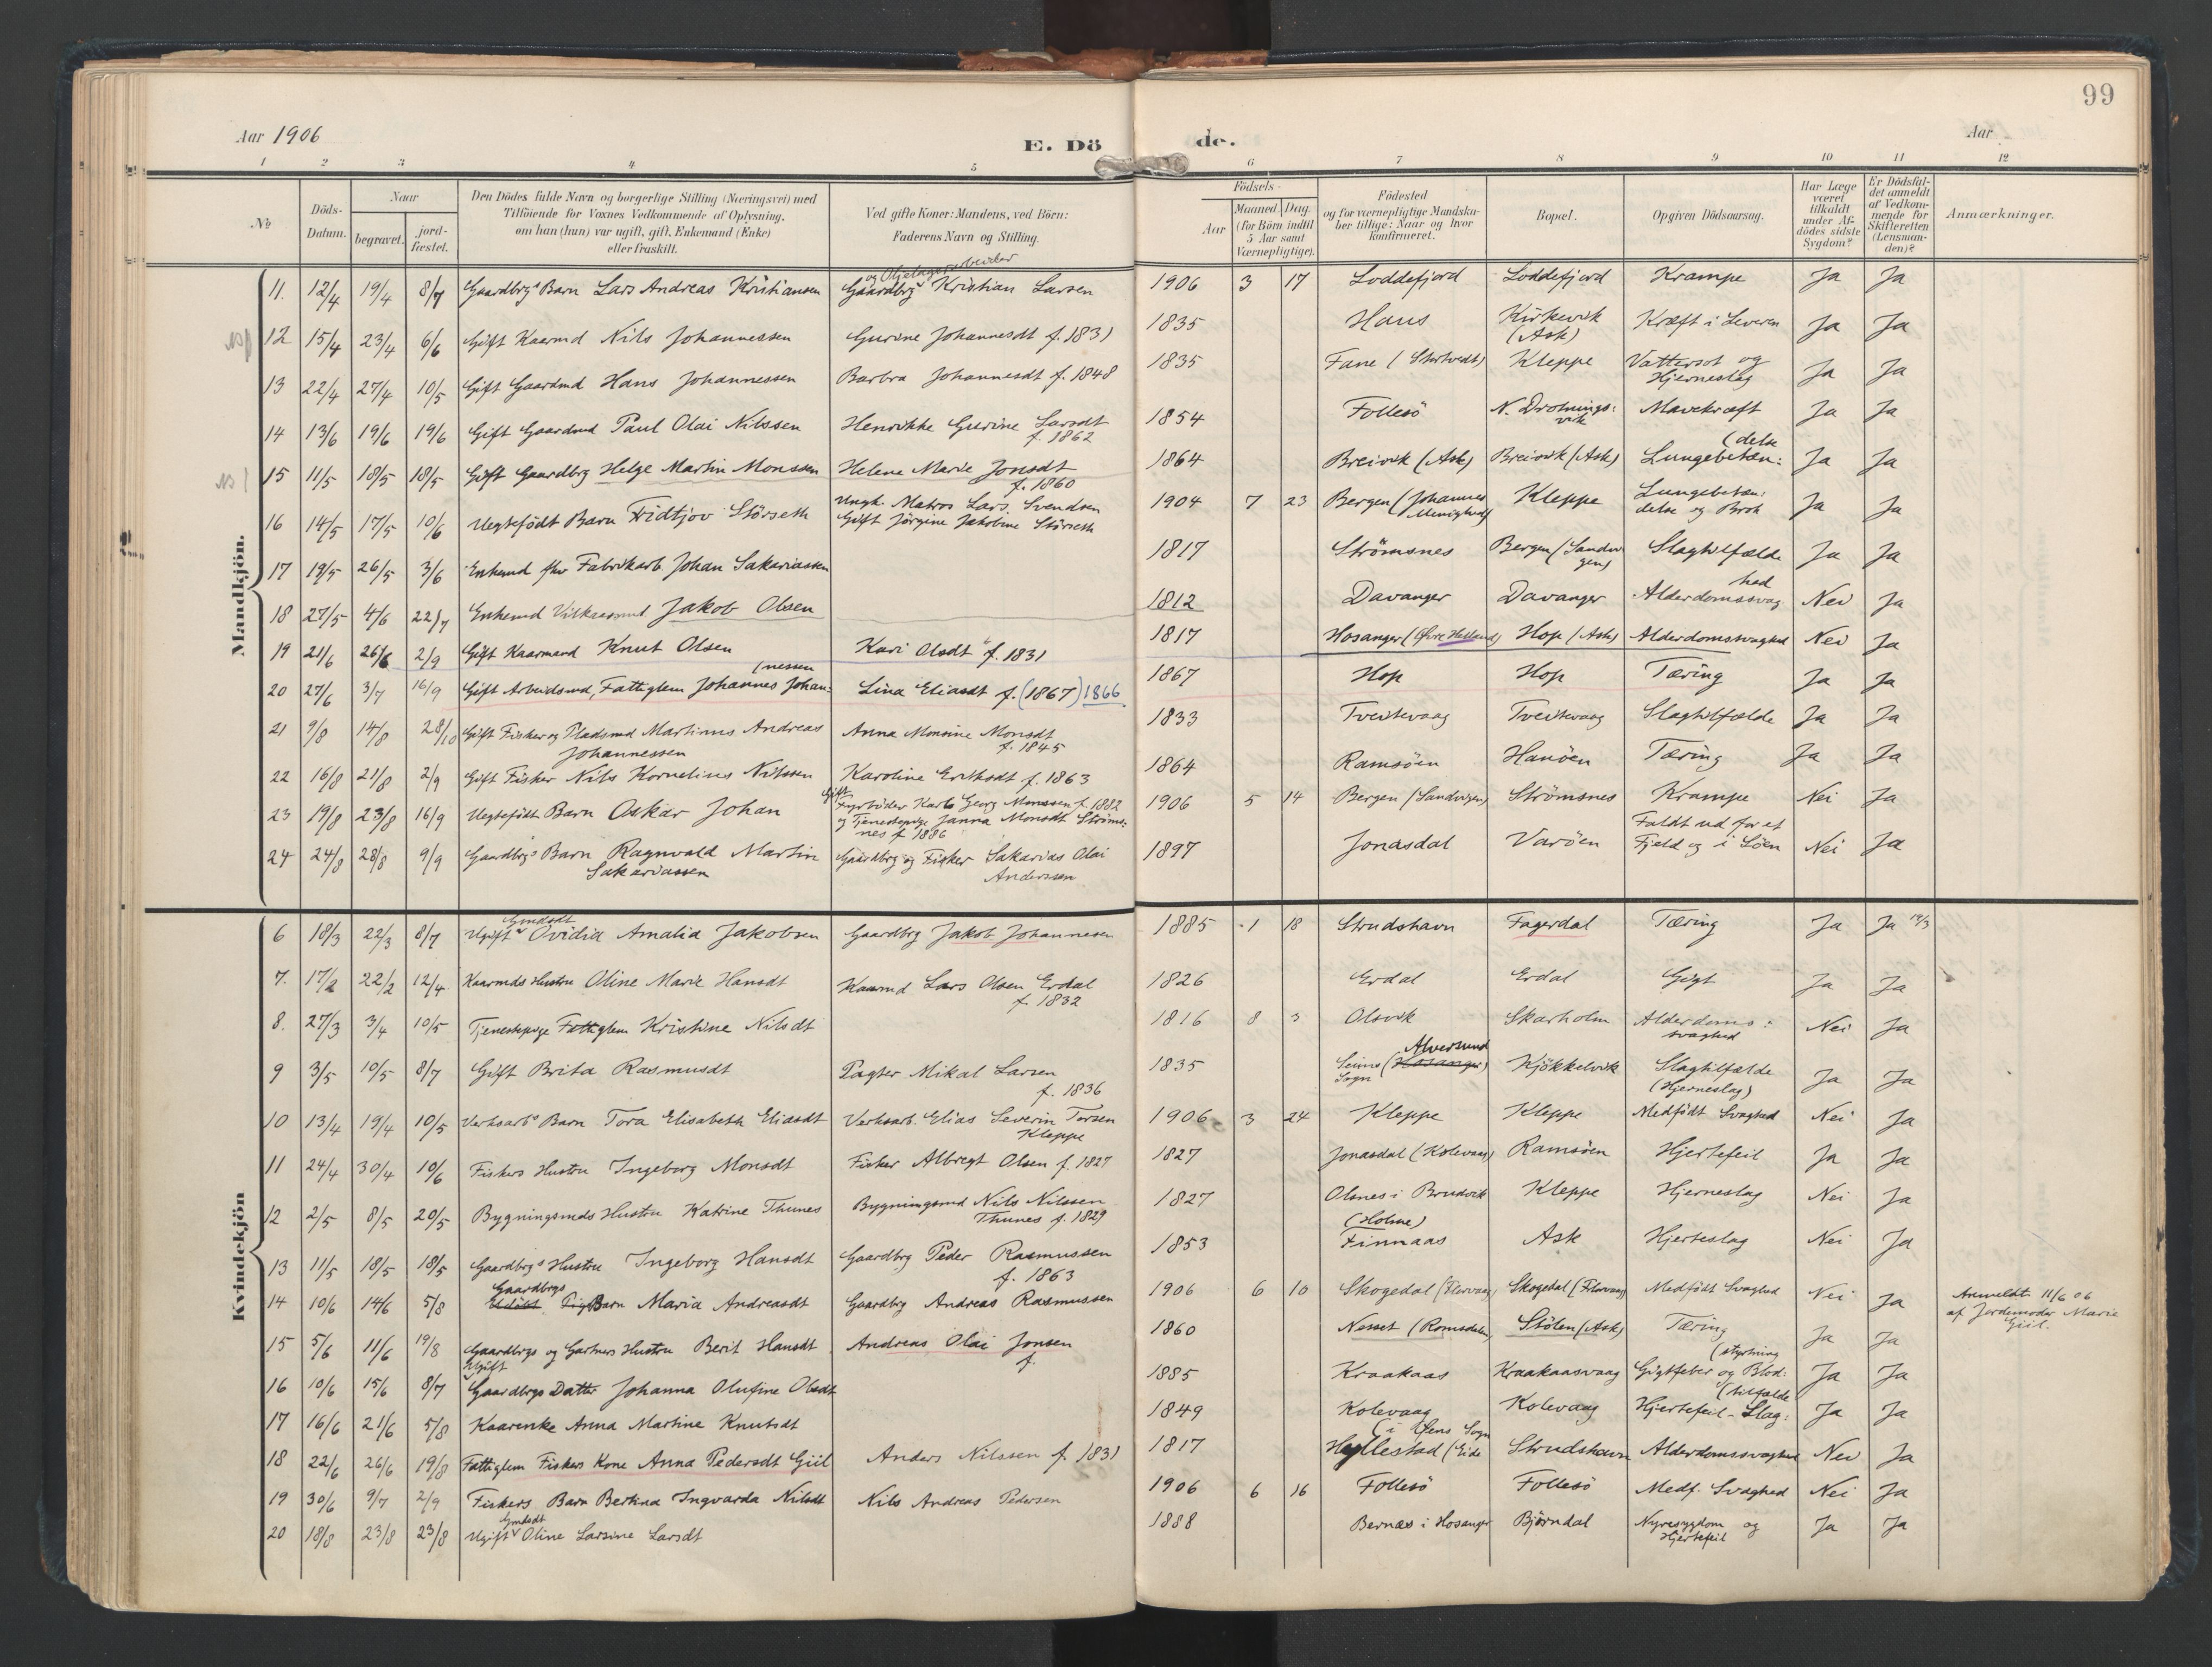 99
Aar 1906
E. Dö
de.
Aar
1 2 3 4 5 6 7 8 9 10 11 12
No
Döds-Datum.
Naar
begravet.
jord-fæstet.
Den Dödes fulde Navn og borgerlige Stilling (Næringsvei) med
Tilföiende for Voxnes Vedkommende af Oplysning,
om han (hun) var ugift, gift, Enkemand (Enke)
eller fraskilt.
Ved gifte Koner: Mandens, ved Börn:
Faderens Navn og Stilling.
Födsels-
Aar
Maaned. Dag.
(for Börn indtil
5 Aar samt
Værnepligtige).
Födested
og for værnepligtige Mandska-
ber tillige: Naar og hvor
Konfirmeret.
Bopæl.
Opgiven Dödsaarsag.
Har Læge
været
tilkaldt
under Af-
dödes sidste
Sygdom?
Er Dödsfal-
det anmeldt
af Vedkom-
mende for
Skifteretten
(Lensman-
den)?
Anmærkninger.
Mandkjön.
11. 12/4 19/4 8/7 Gaardbrgs Barn Lars Andreas Kristiansen Gaardbrg og Oljelagerarbeider Kristian Larsen 1906 3 17 Loddefjord Loddefjord Krampe Ja Ja
12 15/4 23/4 6/6 Gift Kaarmd Nils Johannessen Gurine Johannesdt f. 1831 1835 Haus Kirkevik (Ask) Kræft i Leveren Ja Ja
13 22/4 27/4 10/5 Gift Gaardmd Hans Johannessen Barbra Johannesdt f. 1848 1835 Fane (Stortvedt) Kleppe Vattersot og Hjerneslag Ja Ja
14 13/6 19/6 19/6 Gift Gaardmd Paul Olai Nilssen Henrikke Gurine Larsdt f. 1862 1854 Follesö N. Drotnings:vik Mavekræft Ja Ja
15 11/5 18/5 18/5 Gift Gaardbrg Helge Martin Monssen Helene Marie Jonsdt f. 1860 1864 Breivik (Ask) Breivik (Ask) Lungebetæn:(delse Ja Ja
16 14/5 17/5 10/6 Uegtefödt Barn Fridtjov Störseth Ungk. Matros Lars Svendsen
Gift Jörgine Jakobine Störseth 1904 7 23 Bergen (Johannes Menighed) Kleppe Lungebetæn:delse og Brok Ja Ja
17 19/5 26/5 3/6 Enkemd fhv Fabrikarb. Johan Sakariassen 1817 Strömsnes Bergen (Sandvigen) Slagtilfælde Ja Ja
18 27/5 4/6 22/7 Enkemd Vilkaarsmd Jakob Olsen 1812 Davanger Davanger Alderdomssvaghed Nei Ja
19 21/6 26/6 2/9 Gift Kaarmand Knut Olsen Kari Olsdt f. 1831 1817 Hosanger (Øvre Helland) Hop (Ask) Alderdomssvaghed Nei Ja
20 27/6 3/7 16/9 Gift Arbeidsmd, Fattiglem Johannes Johan:(nessen Lina Eliasdt f. (1867) 1866 1867 Hop Hop Tæring Ja Ja
21 9/8 14/8 28/10 Gift Fisker og Pladsmd Martinus Andreas
Johannessen Anna Monsine Monsdt f. 1845 1833 Tveitevaag Tveitevaag Slagtilfælde Ja Ja
22 16/8 21/8 2/9 Gift Fisker Nils Kornelius Nilssen Karoline Eriksdt f. 1863 1864 Ramsöen Hanöen Tæring Ja Ja
23 19/8 23/8 16/9 Uegtefödt Barn Oskar Johan Gift Fyrböder Karl Georg Monssen f. 1882
og Tjenestepige Janna Monsdt Ströms:
nes f. 1886 1906 5 14 Bergen (Sandvigen) Strömsnes Krampe Nei Ja
24 24/8 28/8 9/9 Gaardbrgs Barn Ragnvald Martin
Sakariassen Gaardbrg og Fisker Sakarias Olai
Anderssen 1897 Jonasdal Varöen Faldt ud for et
Fjeld og i Söen Nei Ja
Kvindekjön
6 18/3 22/3 8/7 Ugift Gmdsdt Ovidia Amalia Jakobsen Gaardbrg Jakob Johannesen 1885 1 18 Strudshavn Fagerdal Tæring Ja Ja 19/3
7. 17/2 22/2 12/4 Kaarmds Hustru Oline Marie Hansdt Kaarmd Lars Olsen Erdal f. 1832 1826 Erdal Erdal Gigt Ja Ja
8. 27/3 3/4 10/5 Tjenestepige Fattiglem Kristine Nilsdt 1816 8 3 Olsvik Skarholm Alderdoms:svaghed Nei Ja
9 3/5 10/5 8/7 Gift Brita Rasmusdt Pagter Mikal Larsen f. 1836 1835 Seims Sogn (Hosanger) Alversund Kjökkelvik Slagtilfælde (Hjerneslag) Ja Ja
10 13/4 19/4 10/5 Verksarbs Barn Tora Elisabeth Eliasdt Verksarb. Elias Severin Torsen Kleppe 1906 3 24 Kleppe Kleppe Medfödt Svaghed Nei Ja
11 24/4 30/4 10/6 Fiskers Hustru Ingeborg Monsdt Fisker Albregt Olsen f. 1827 1827 Jonasdal (Kolevaag) Ramsöen Hjertefeil Ja Ja
12 2/5 8/5 20/5 Bygningsmds Hustru Katrine Thunes Bygningsmd Nils Nilssen Thunes f. 1829 1827 Olsnes i Brudvik Kleppe Hjerneslag Nei Ja
13 11/5 18/5 18/5 Gaardbrgs Hustru Ingeborg Hansdt Gaardbrg Peder Rasmussen f. 1863 1853 (Holme) Finnaas Ask Hjerteslag Nei Ja
14 10/6 14/6 5/8 Gaardbrgs Barn Maria Andreasdt Gaardbrg Andreas Rasmussen 1906 6 10 Skogedal (Florvaag) Skogedal (Florvaag) Medfödt Svaghed Nei Ja Anmeldt 11/6 06
af Jordemoder Marie
Giil.
15 5/6 11/6 19/8 Gaardbrgs og Gartners Hustru Berit Hansdt Andreas Olai Jonsen f. 1860 Nesset (Romsdalen) Stölen (Ask) Tæring Ja Ja
16 10/6 15/6 8/7 Ugift Gaardbrgs Datter Johanna Olufine Olsdt 1885 Kraakaas Kraakaasvaag Gigtfeber og Blod:(styrtning Ja Ja
17 16/6 21/6 5/8 Kaarenke Anna Martine Knutsdt 1849 Kolevaag Kolevaag Hjertefeil - Slag:(tilfælde Ja Ja
18 22/6 26/6 19/8 Fattiglem Fiskers Kone Anna Pedersdt Giil Anders Nilssen f. 1831 1817 Hyllestad (Eide i Öens Sogn Strudshavn Alderdomssvaghed Nei Ja
19 30/6 9/7 2/9 Fiskers Barn Bertina Ingvarda Nilsdt Nils Andreas Pedersen 1906 6 16 Follesö Follesö Medf. Svaghed Nei Ja
20 18/8 23/8 23/8 Ugift Gmdsdt Oline Larsine Larsdt 1888 Bernæs i Hosanger Björndal Nyresygdom og
Hjertefeil Ja Ja